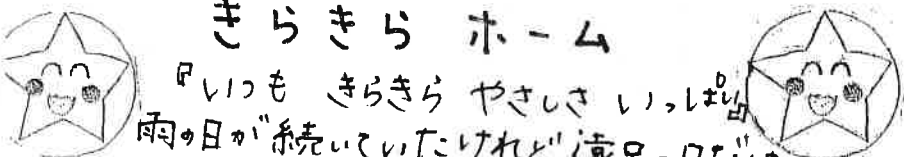 きらきら ホーム
『いつも きらきら やさしさ いっぱい』
雨の日が続いていたけれど遠足の日だけは